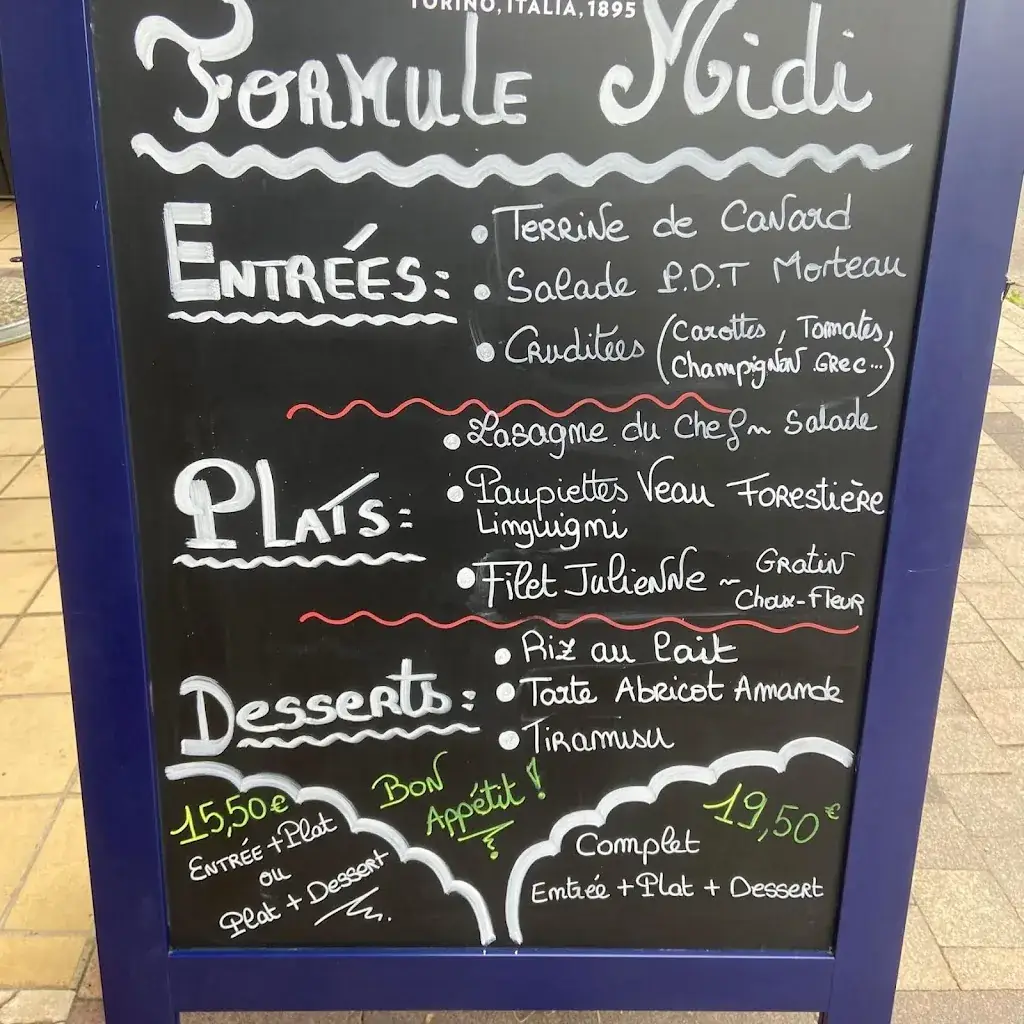 TORINO, ITALIA, 1895
FORMULE Midi
ENTRÉES:
• TERRINE de CANARD
• Salade P.D.T Morteau
• Cruditées (Carottes, Tomates,
Champignon GREC...)
PLATS:
• Lasagne du Chef ~ Salade
• Paupiettes Veau FORESTIÈRE
Linguigni
• FILET JULIENNE ~ GRATIN
Choux-FLEUR
Desserts:
• Riz au Lait
• Tarte Abricot Amande
• Tiramisu
BON
Appétit !
15,50€
ENTRÉE + Plat
ou
Plat + Dessert
19,50€
Complet
Entrée + Plat + Dessert